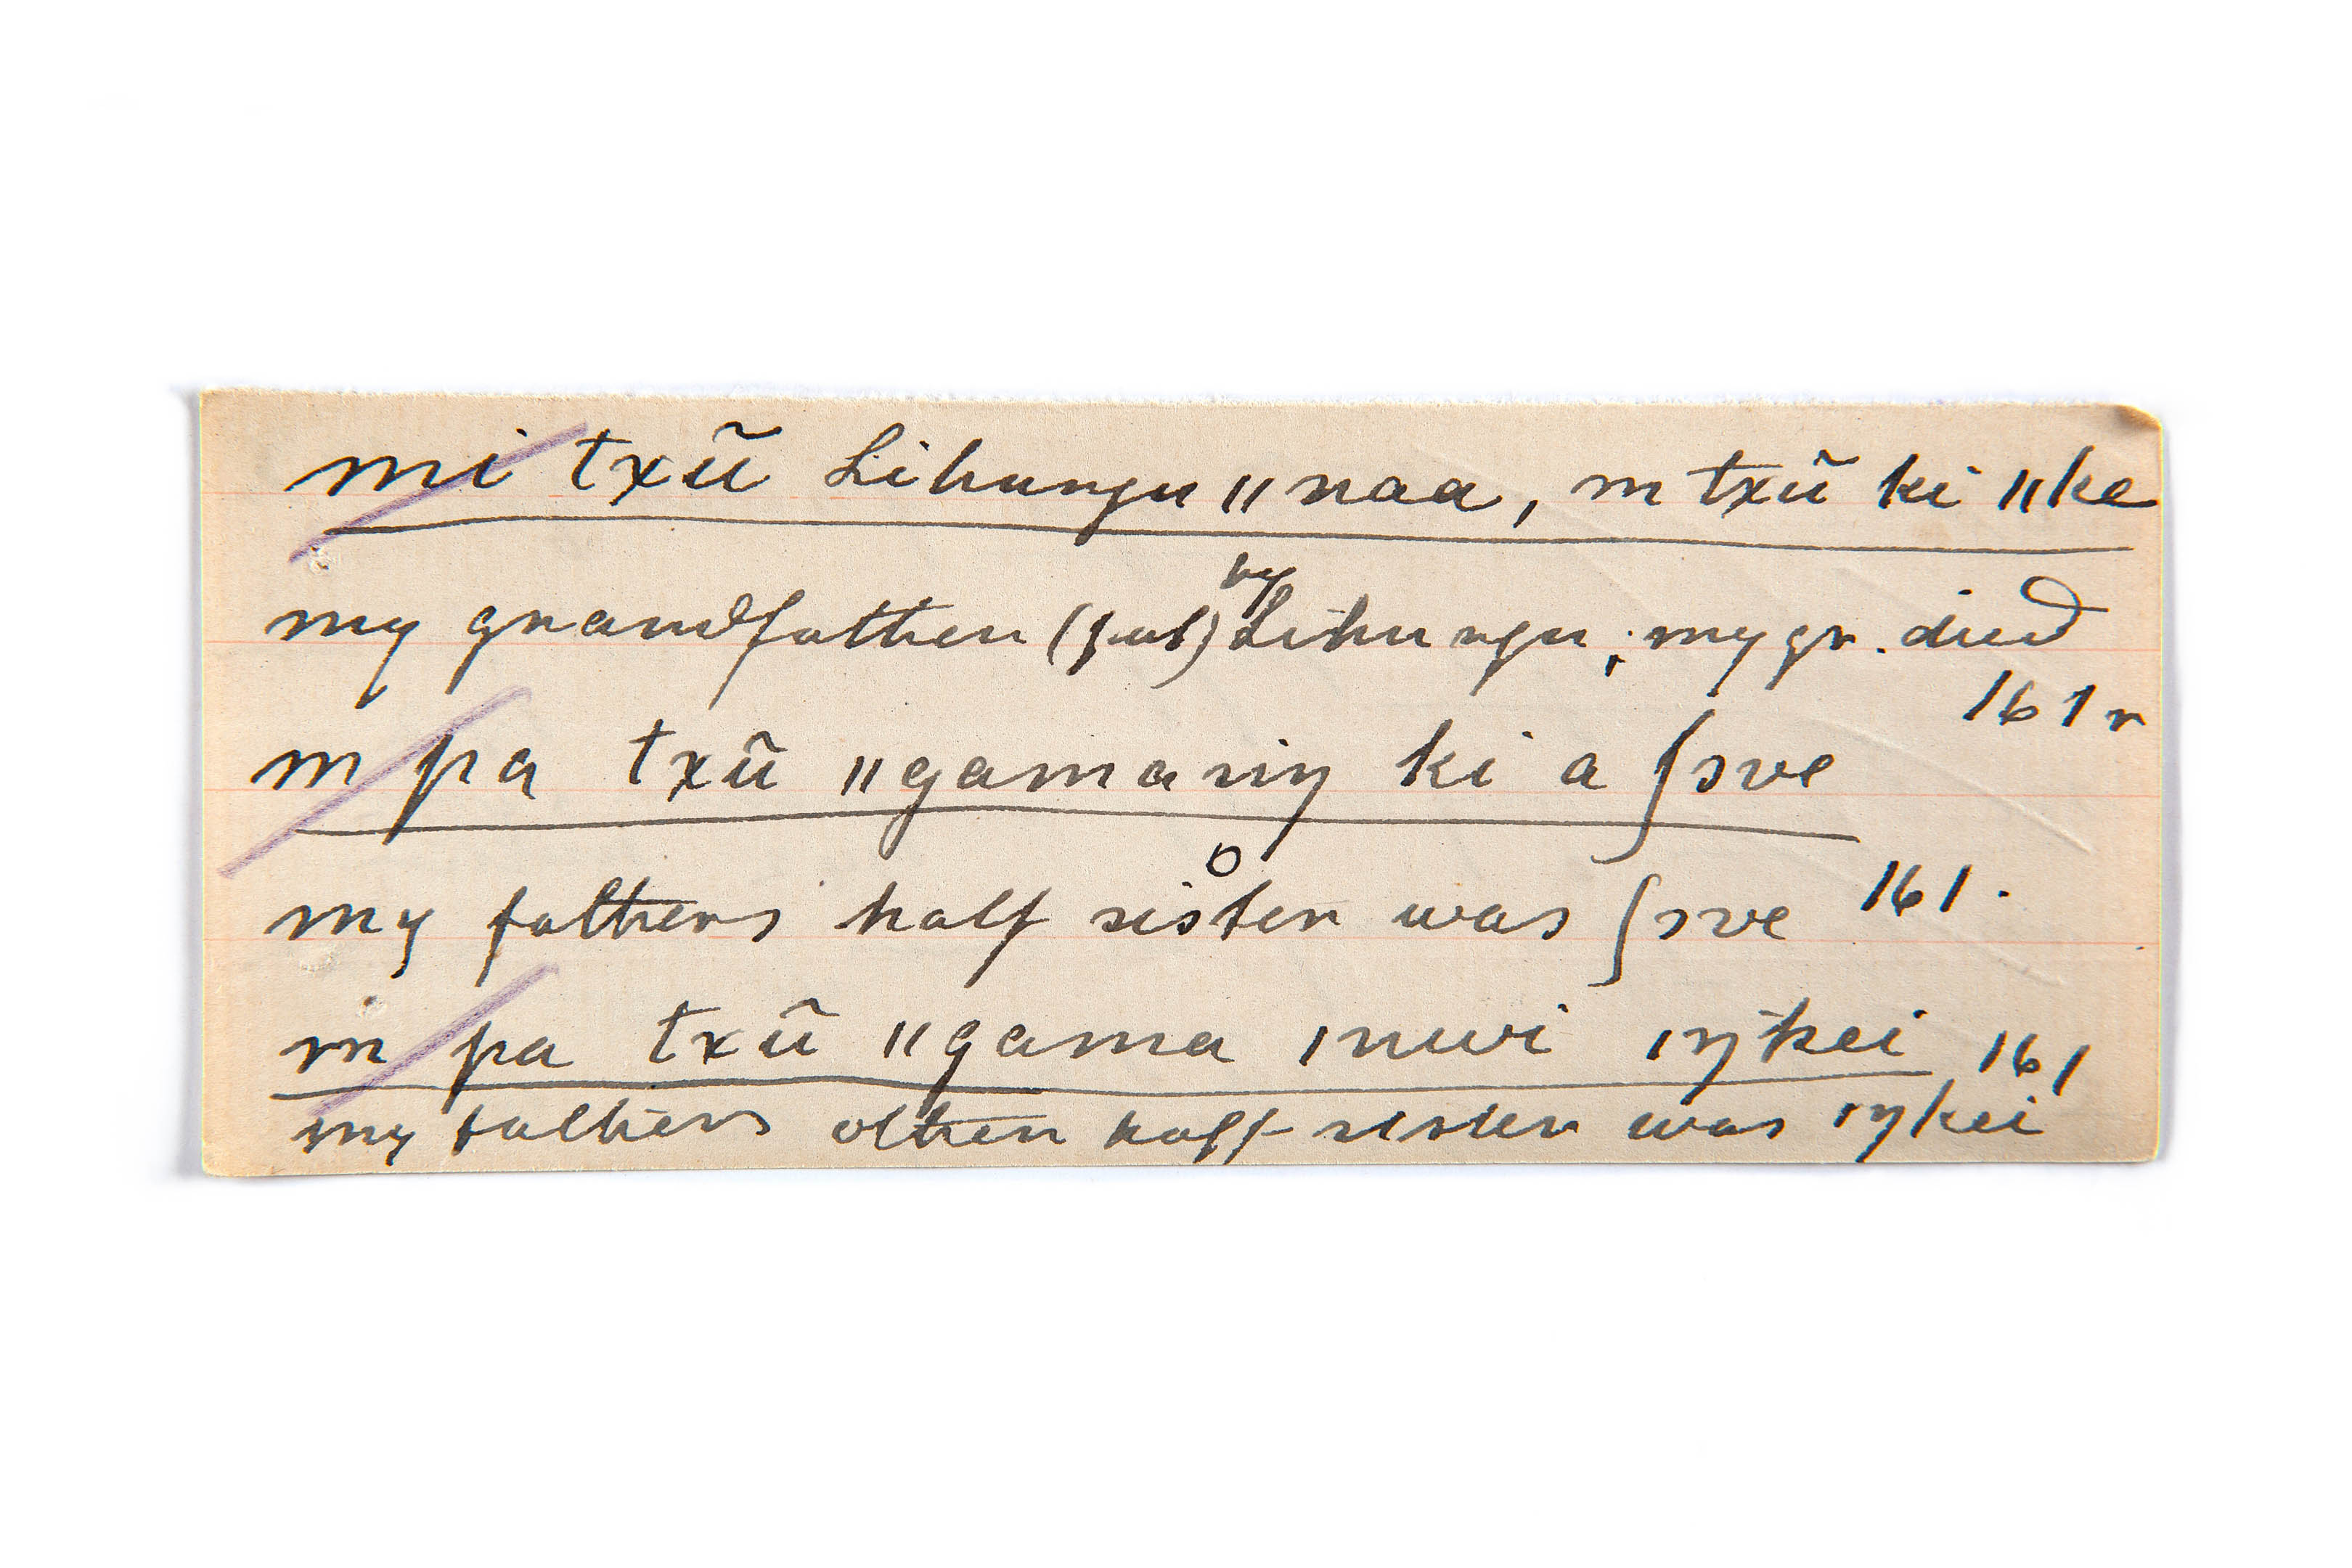 mi txũ Lihungu ǁnaa, m txũ ki ǁke
my grandfather by Lihungu; my gr. died
161r
m pa txũ ǁgamaŋ ki a ʃɔve
my fathers half sister was ʃɔve 161.
m pa txũ ǁgama ǀnuvi ǀŋkei 161
my fathers other half sister was ǀŋkei